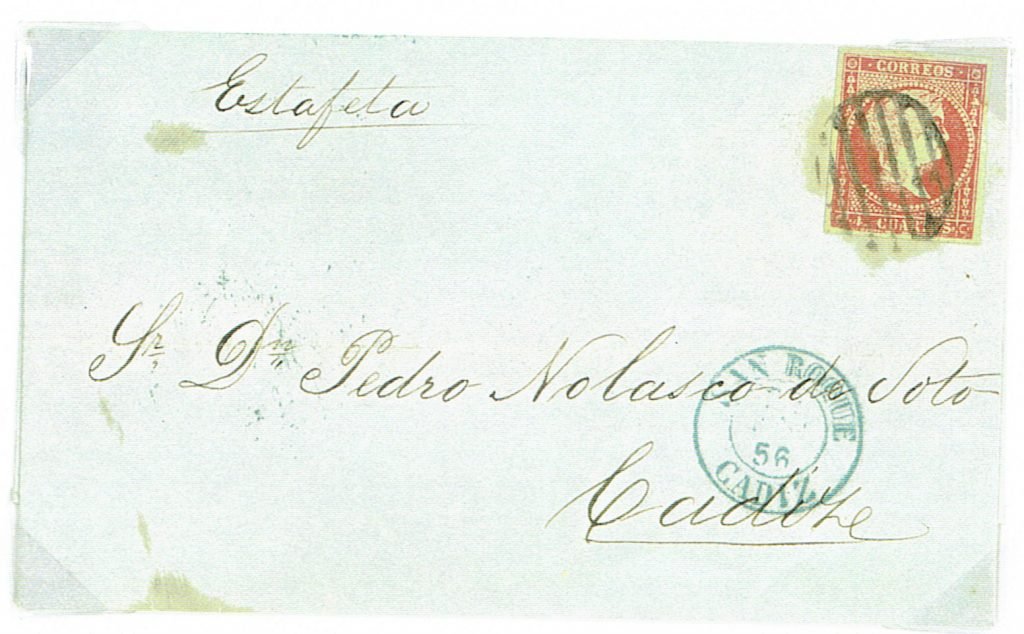 Estafeta
CORREOS
4 CUARTOS
Sr. Dn. Pedro Nolasco de Soto
SAN ROQUE
56
CADIZ
Cadiz